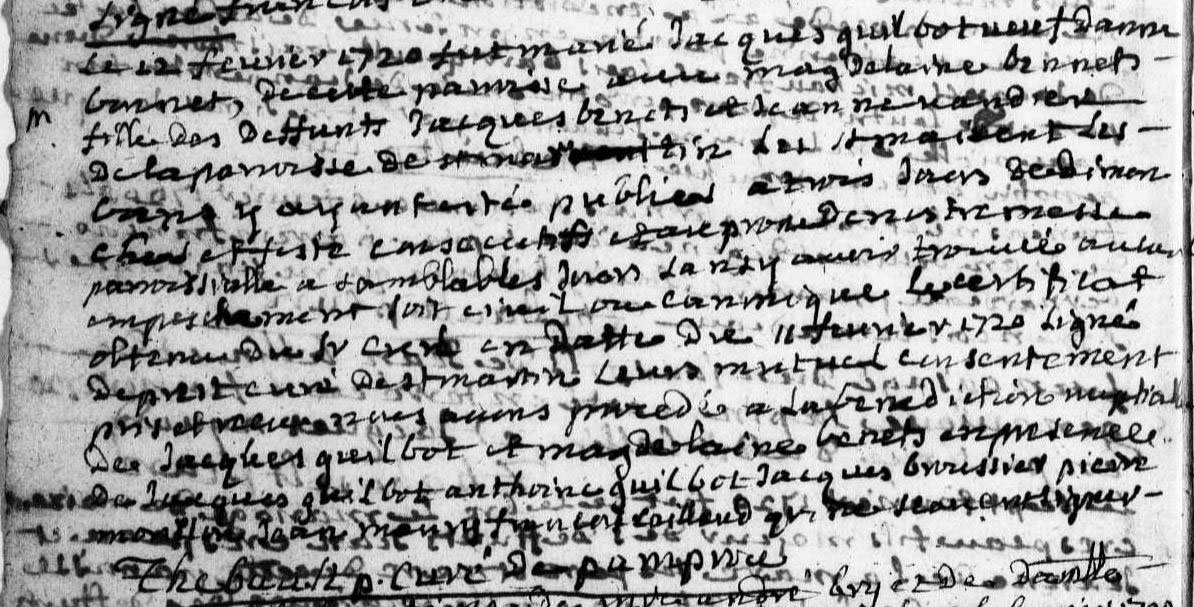 signé francois
Le 12 fevrier 1720 fut marié Jacques guilbot veuf danne
bunnet, de cette parroisse avec magdelaine benets
m
fille des deffunts Jacques benets et Jeanne
de la paroisse de st martin les st maixent les
bans y ayant esté publiés a trois Jours de diman
ches et feste consecutifs au prone de nostre messe
parroissialle a samblables Jours sans y avoir trouvé aucun
impeschement soit civil ou canonique le certificat
obtenu du sr curé en datte du 11 fevrier 1720 signé
curé de st martin leurs mutuel consentement
pris et receu nous avons procedé a la benediction nuptiale
de Jacques guilbot et magdelaine benets en presence
de Jacques guilbot anthoine guilbot Jacques broussier pierre
Jean francois qui ne scavent signer
p. curé de pamprou